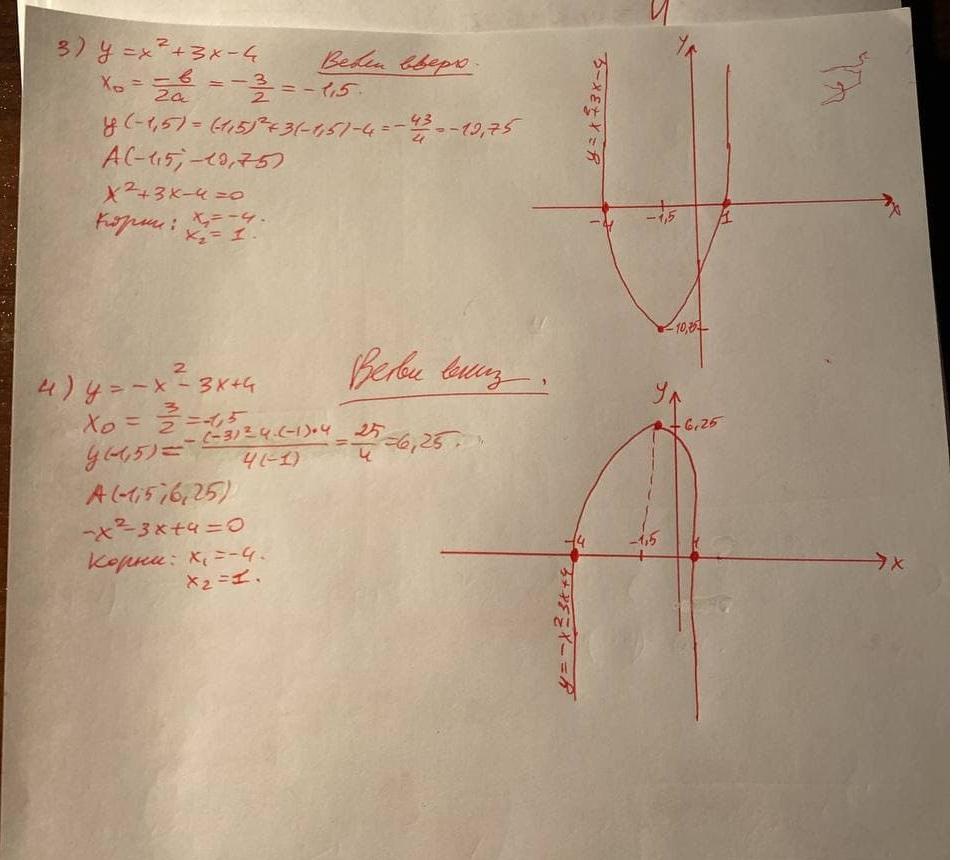 3) y = x² + 3x - 4
Ветви вверх.
x₀ = -в/2а = -3/2 = -1,5.
y(-1,5) = (-1,5)² + 3(-1,5) - 4 = -43/4 = -10,75
A(-1,5; -10,75)
x² + 3x - 4 = 0
Корни: x₁ = -4.
x₂ = 1.
y
y = x² + 3x - 4
-4
-1,5
1
x
-10,75
4) y = -x² - 3x + 4
Ветви вниз.
x₀ = 3/2 = -1,5
y(-1,5) = -(-3)² - 4·(-1)·4/4(-1) = 25/4 = 6,25.
A(-1,5; 6,25)
-x² - 3x + 4 = 0
Корни: x₁ = -4.
x₂ = 1.
y
6,25
-4
-1,5
1
x
y = -x² - 3x + 4